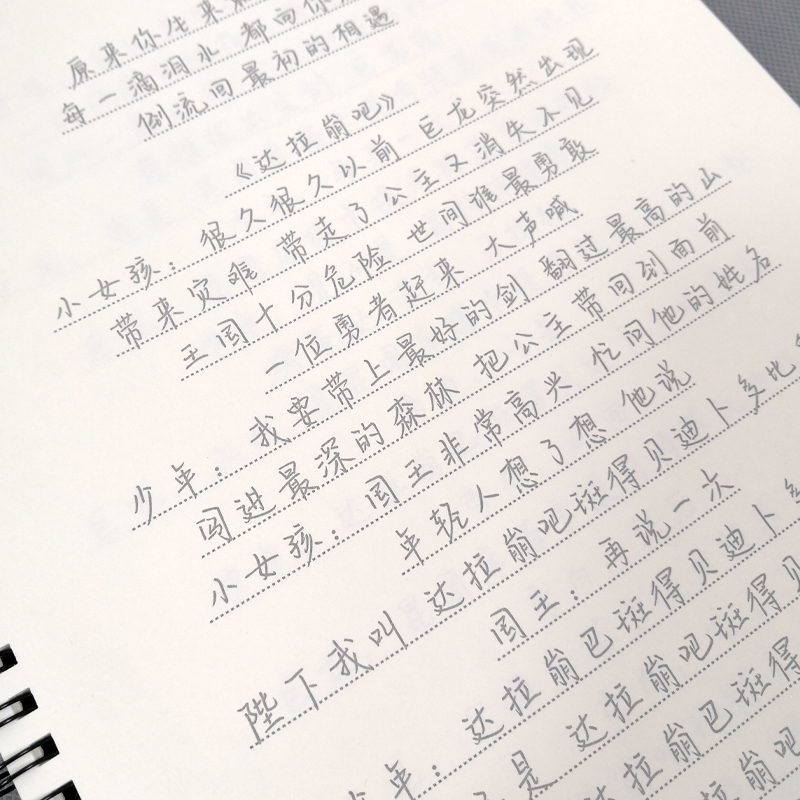 原来你生来就
每一滴泪水 都向你
倒流回最初的相遇
《达拉崩吧》
小女孩：很久很久以前 巨龙突然出现
带来灾难 带走了公主又消失不见
王国十分危险 世间谁最勇敢
一位勇者赶来 大声喊
少年：我要带上最好的剑 翻过最高的山
闯进最深的森林 把公主带回到面前
小女孩：国王非常高兴 忙问他的姓名
年轻人想了想 他说
陛下我叫 达拉崩吧斑得贝迪卜多比
国王：再说一次
少年：达拉崩巴斑得贝迪卜多
是 达拉崩吧斑得贝
达拉崩巴斑得
达拉崩吧